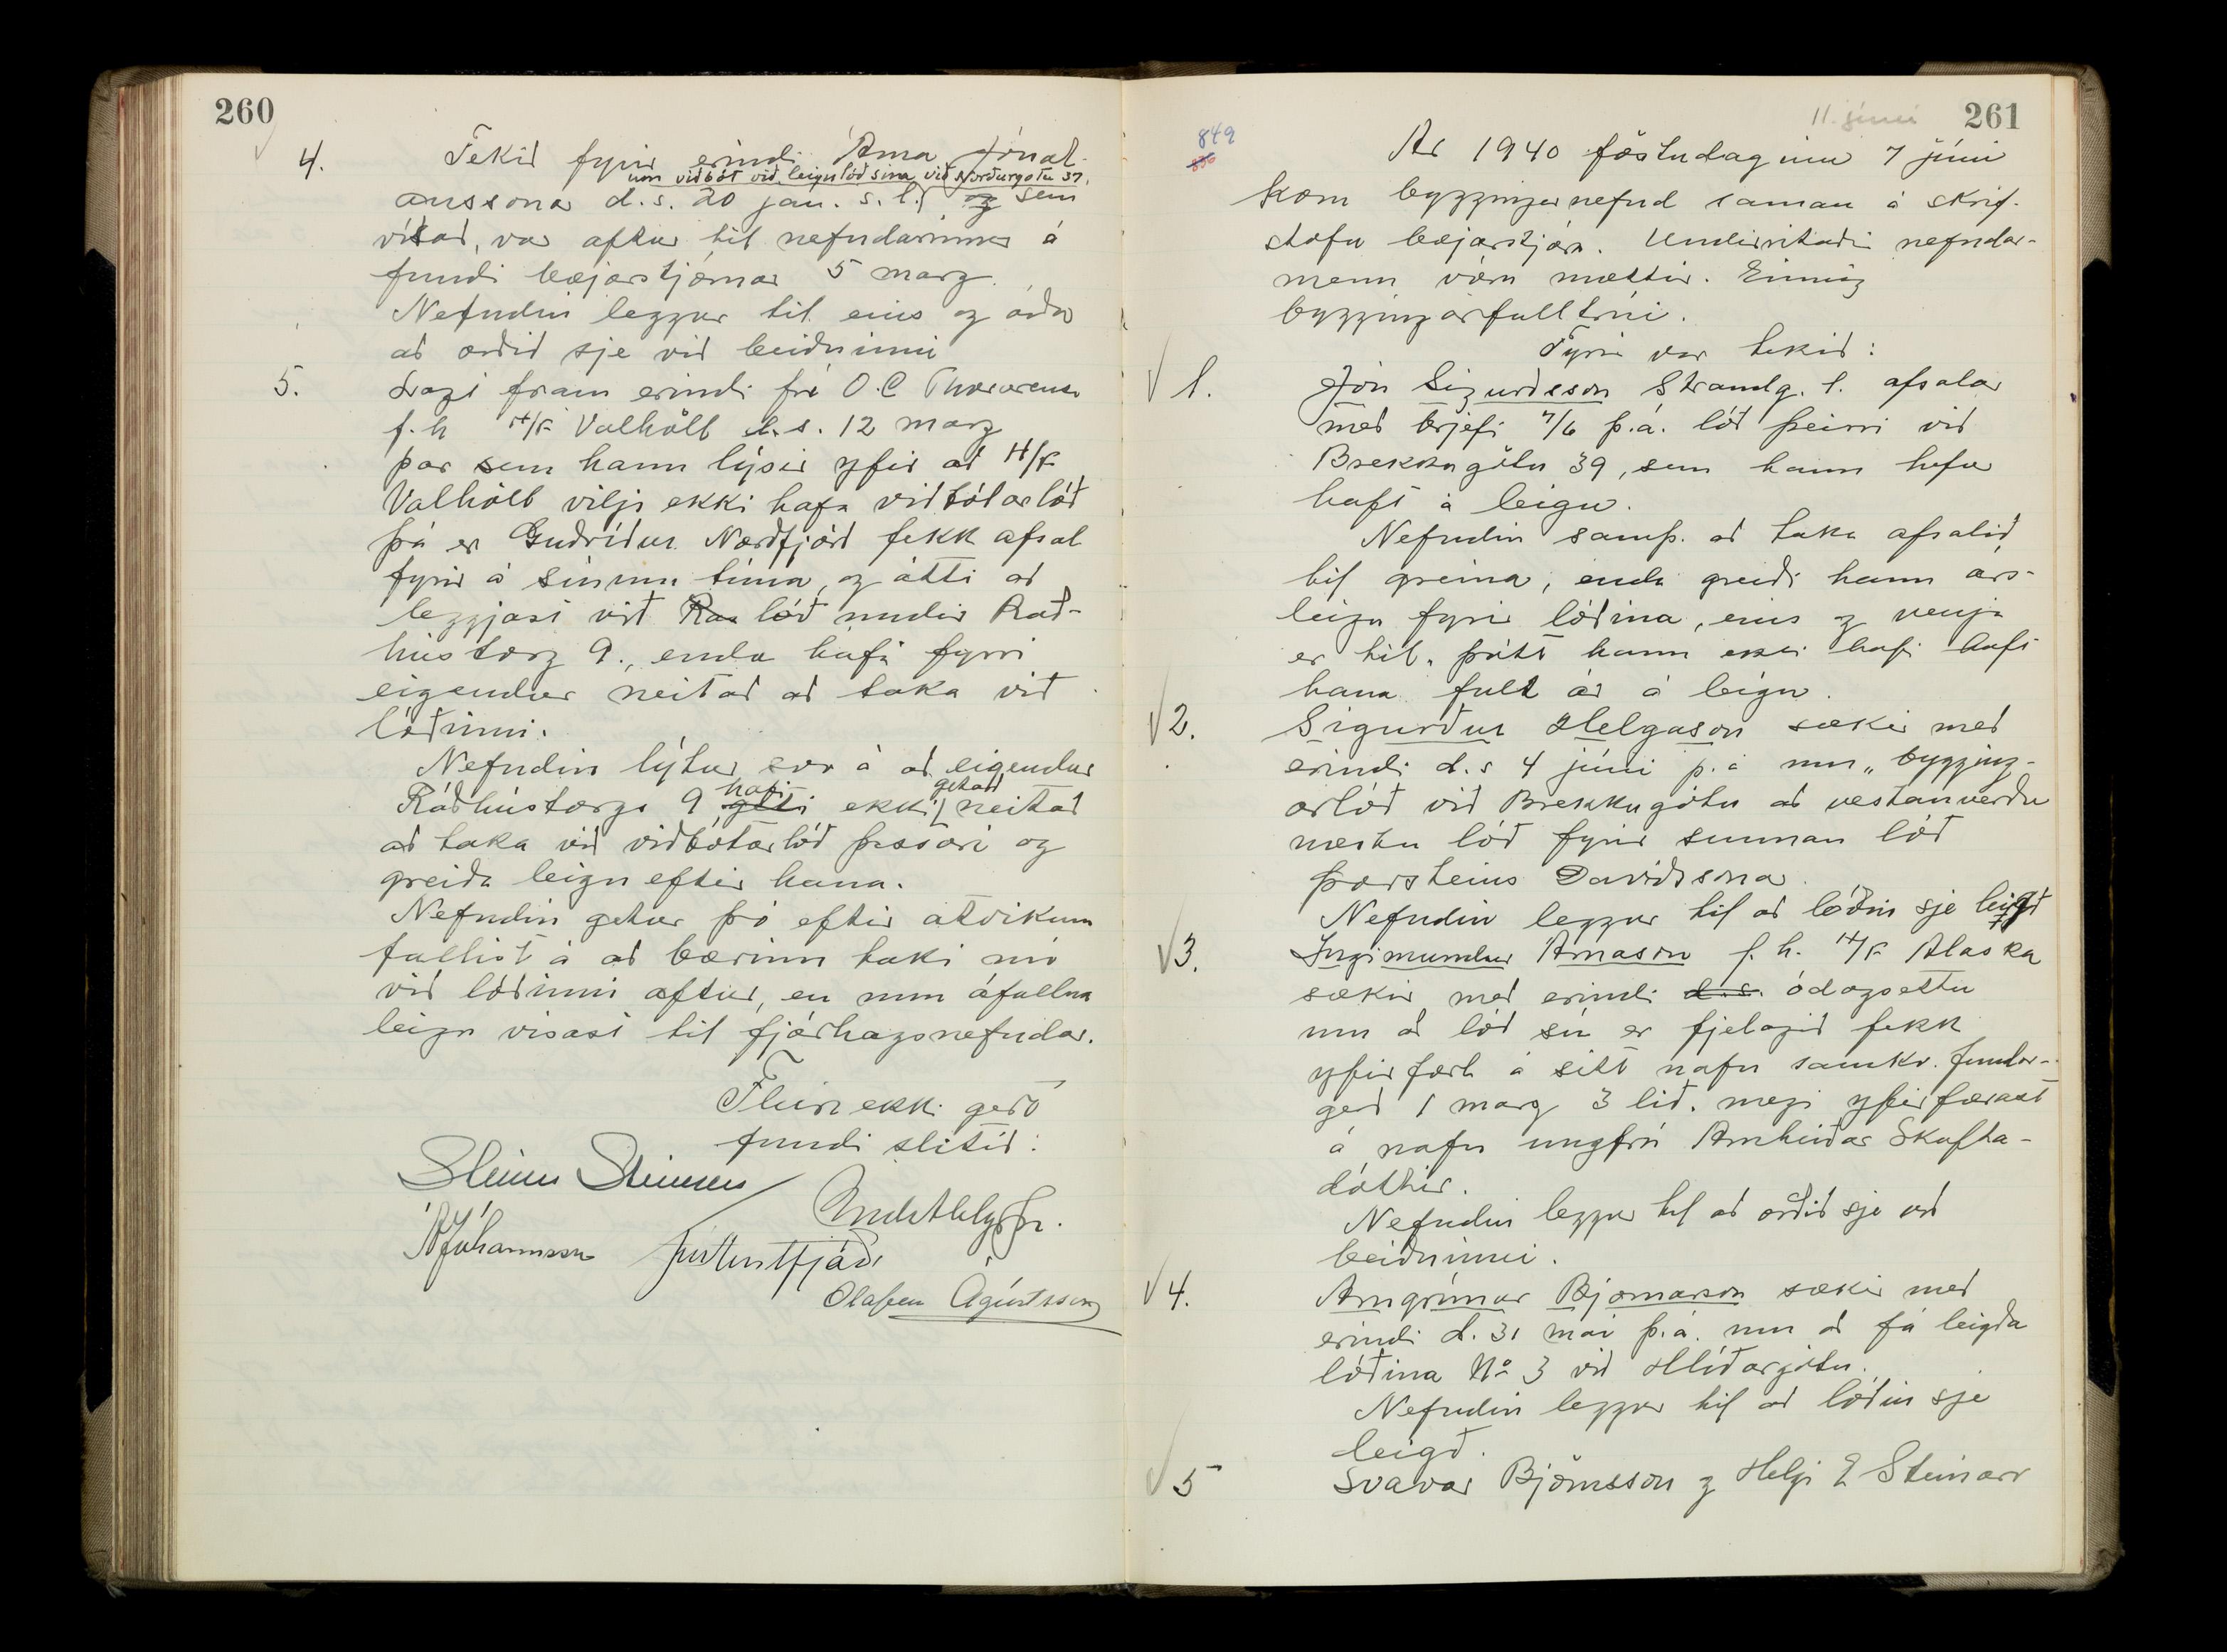 260
4. Tekið fyrir erindi Árna Jónat-
um viðbót við leigulóð sína við Norðurgötu 37,
anssonar d.s. 20 jan. s.l. og sem
vísað, var aftur til nefndarinnar á
fundi bæjarstjórnar 5 marz.
Nefndin leggur til eins og áður
að orðið sje við beiðninni
5. Lagt fram erindi frá O.C Thorarensen
f.h H/F Valhöll d.s. 12 marz
þar sem hann lýsir yfir að H/F
Valhöll vilji ekki hafa viðbótarlóð
þá er Guðríður Norðfjörð fekk afsal
fyrir á sínum tíma, og átti að
leggjast við Ra lóð undir Ráð-
hústorg 9., enda hafi fyrri
eigendur neitað að taka við
lóðinni.
Nefndin lýtur svo á að eigendur
hafi getað
Ráðhústorgs 9 gæti ekki neitað
að taka við viðbótarlóð þessari og
greiða leigu eftir hana.
Nefndin getur þó eftir atvikum
fallist á að bærinn taki nú
við lóðinni aftur, en um áfallna
leigu vísast til fjárhagsnefndar.
Fleira ekki gert
fundi slitið:
Steinn Steinsen
Á Jóhannsson
Olafur Ágústsson
11. júní 261
849
830
Ár 1940 föstudaginn 7 júní
kom byggingarnefnd saman á skrif-
stofu bæjarstjóra. Undirritaðir nefndar-
menn vóru mættir. Einnig
byggingarfulltrúi.
Fyrir var tekið:
1. Jón Sigurðsson Strandg. 1. afsalar
með brjefi 7/6 þ.á. lóð þeirri við
Brekkugötu 39, sem hann hefur
haft á leigu.
Nefndin samþ. að taka afsalið
til greina, enda greiði hann árs-
leigu fyrir lóðina, eins og venja
er til, þótt hann ekki hafi haft
hana fullt ár á leigu.
2. Sigurður Helgason sækir með
erindi d.s 4 júní þ.á um "bygging-
arlóð við Brekkugötu að vestanverðu
næstu lóð fyrir sunnan lóð
Þorsteins Davíðssonar
Nefndin leggur til að lóðin sje leigð
3. Ingimundur Árnason f.h. H/F Alaska
sækir með erindi d.s. ódagsettu
um að lóð sú er fjelagið fekk
yfirfærð á sitt nafn samkv. fundar-
gerð 1 marz 3 lið. megi yfirfærast
á nafn ungfrú Arnheiðar Skafta-
dóttir.
Nefndin leggur til að orðið sje við
beiðninni.
4. Arngrímur Bjarnason sækir með
erindi d. 31 maí þ.á. um að fá leigða
lóðina No 3 við Hlíðargötu.
Nefndin leggur til að lóðin sje
leigð.
5 Svavar Björnsson og Helgi E Steinarr